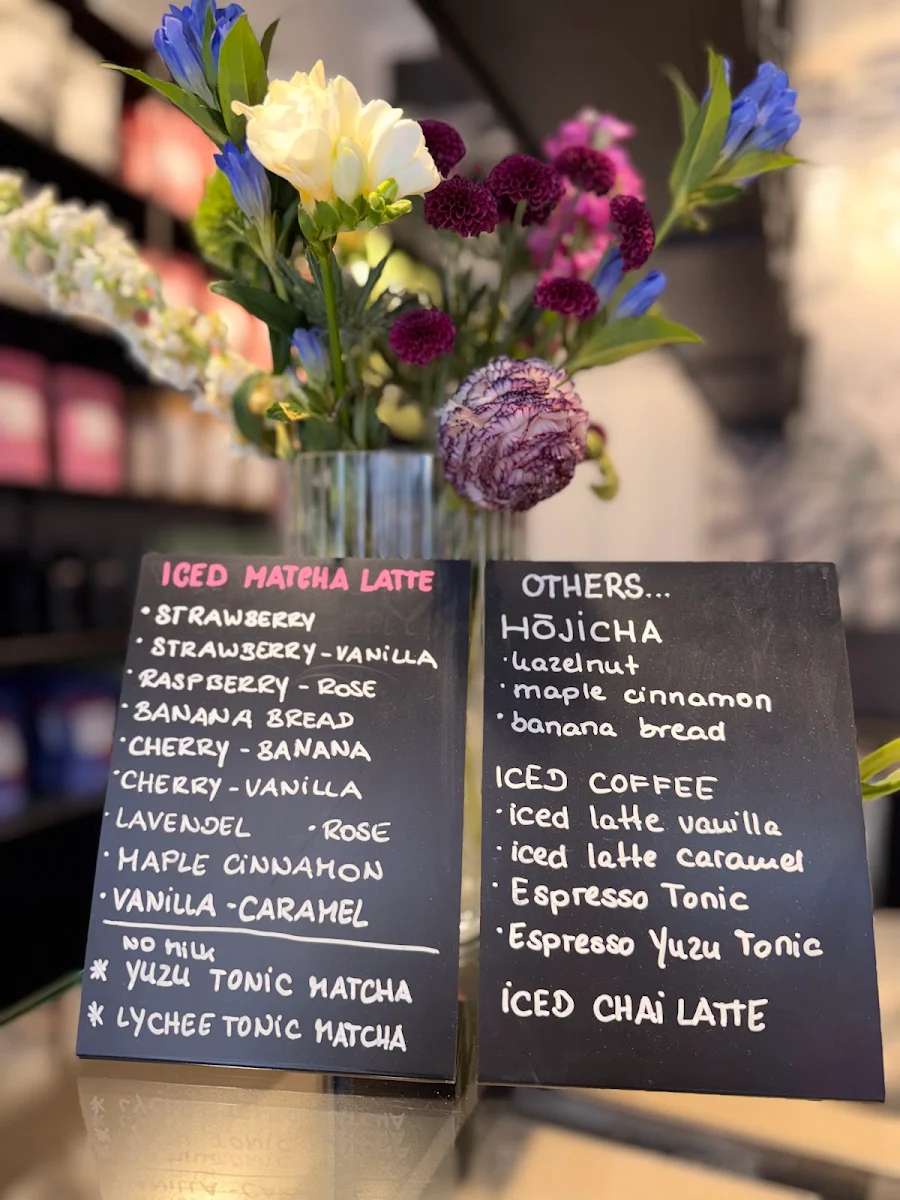 ICED MATCHA LATTE
• STRAWBERRY
• STRAWBERRY-VANiLLA
• RASPBERRY - ROSE
• BANANA BREAD
• CHERRY - BANANA
• CHERRY - VANiLLA
• LAVENDEL • ROSE
• MAPLE CiNNAMON
• VANiLLA - CARAMEL
NO MiLK
* YUZU TONiC MATCHA
* LYCHEE TONiC MATCHA
OTHERS...
HŌJiCHA
• hazelnut
• maple cinnamon
• banana bread
ICED COFFEE
• iced latte vanilla
• iced latte caramel
• Espresso Tonic
• Espresso Yuzu Tonic
iCED CHAi LATTE